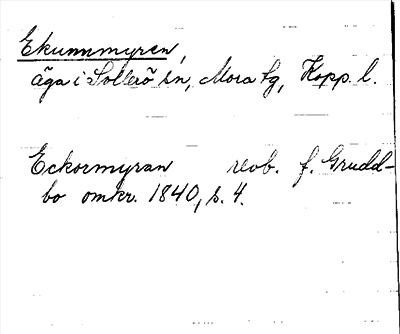 Ekunnmyren,
äga i Sollerö sn, Mora tg, Kopp. l.
Eckormyran revb. f. Grudd-
bo omkr. 1840, s. 4.